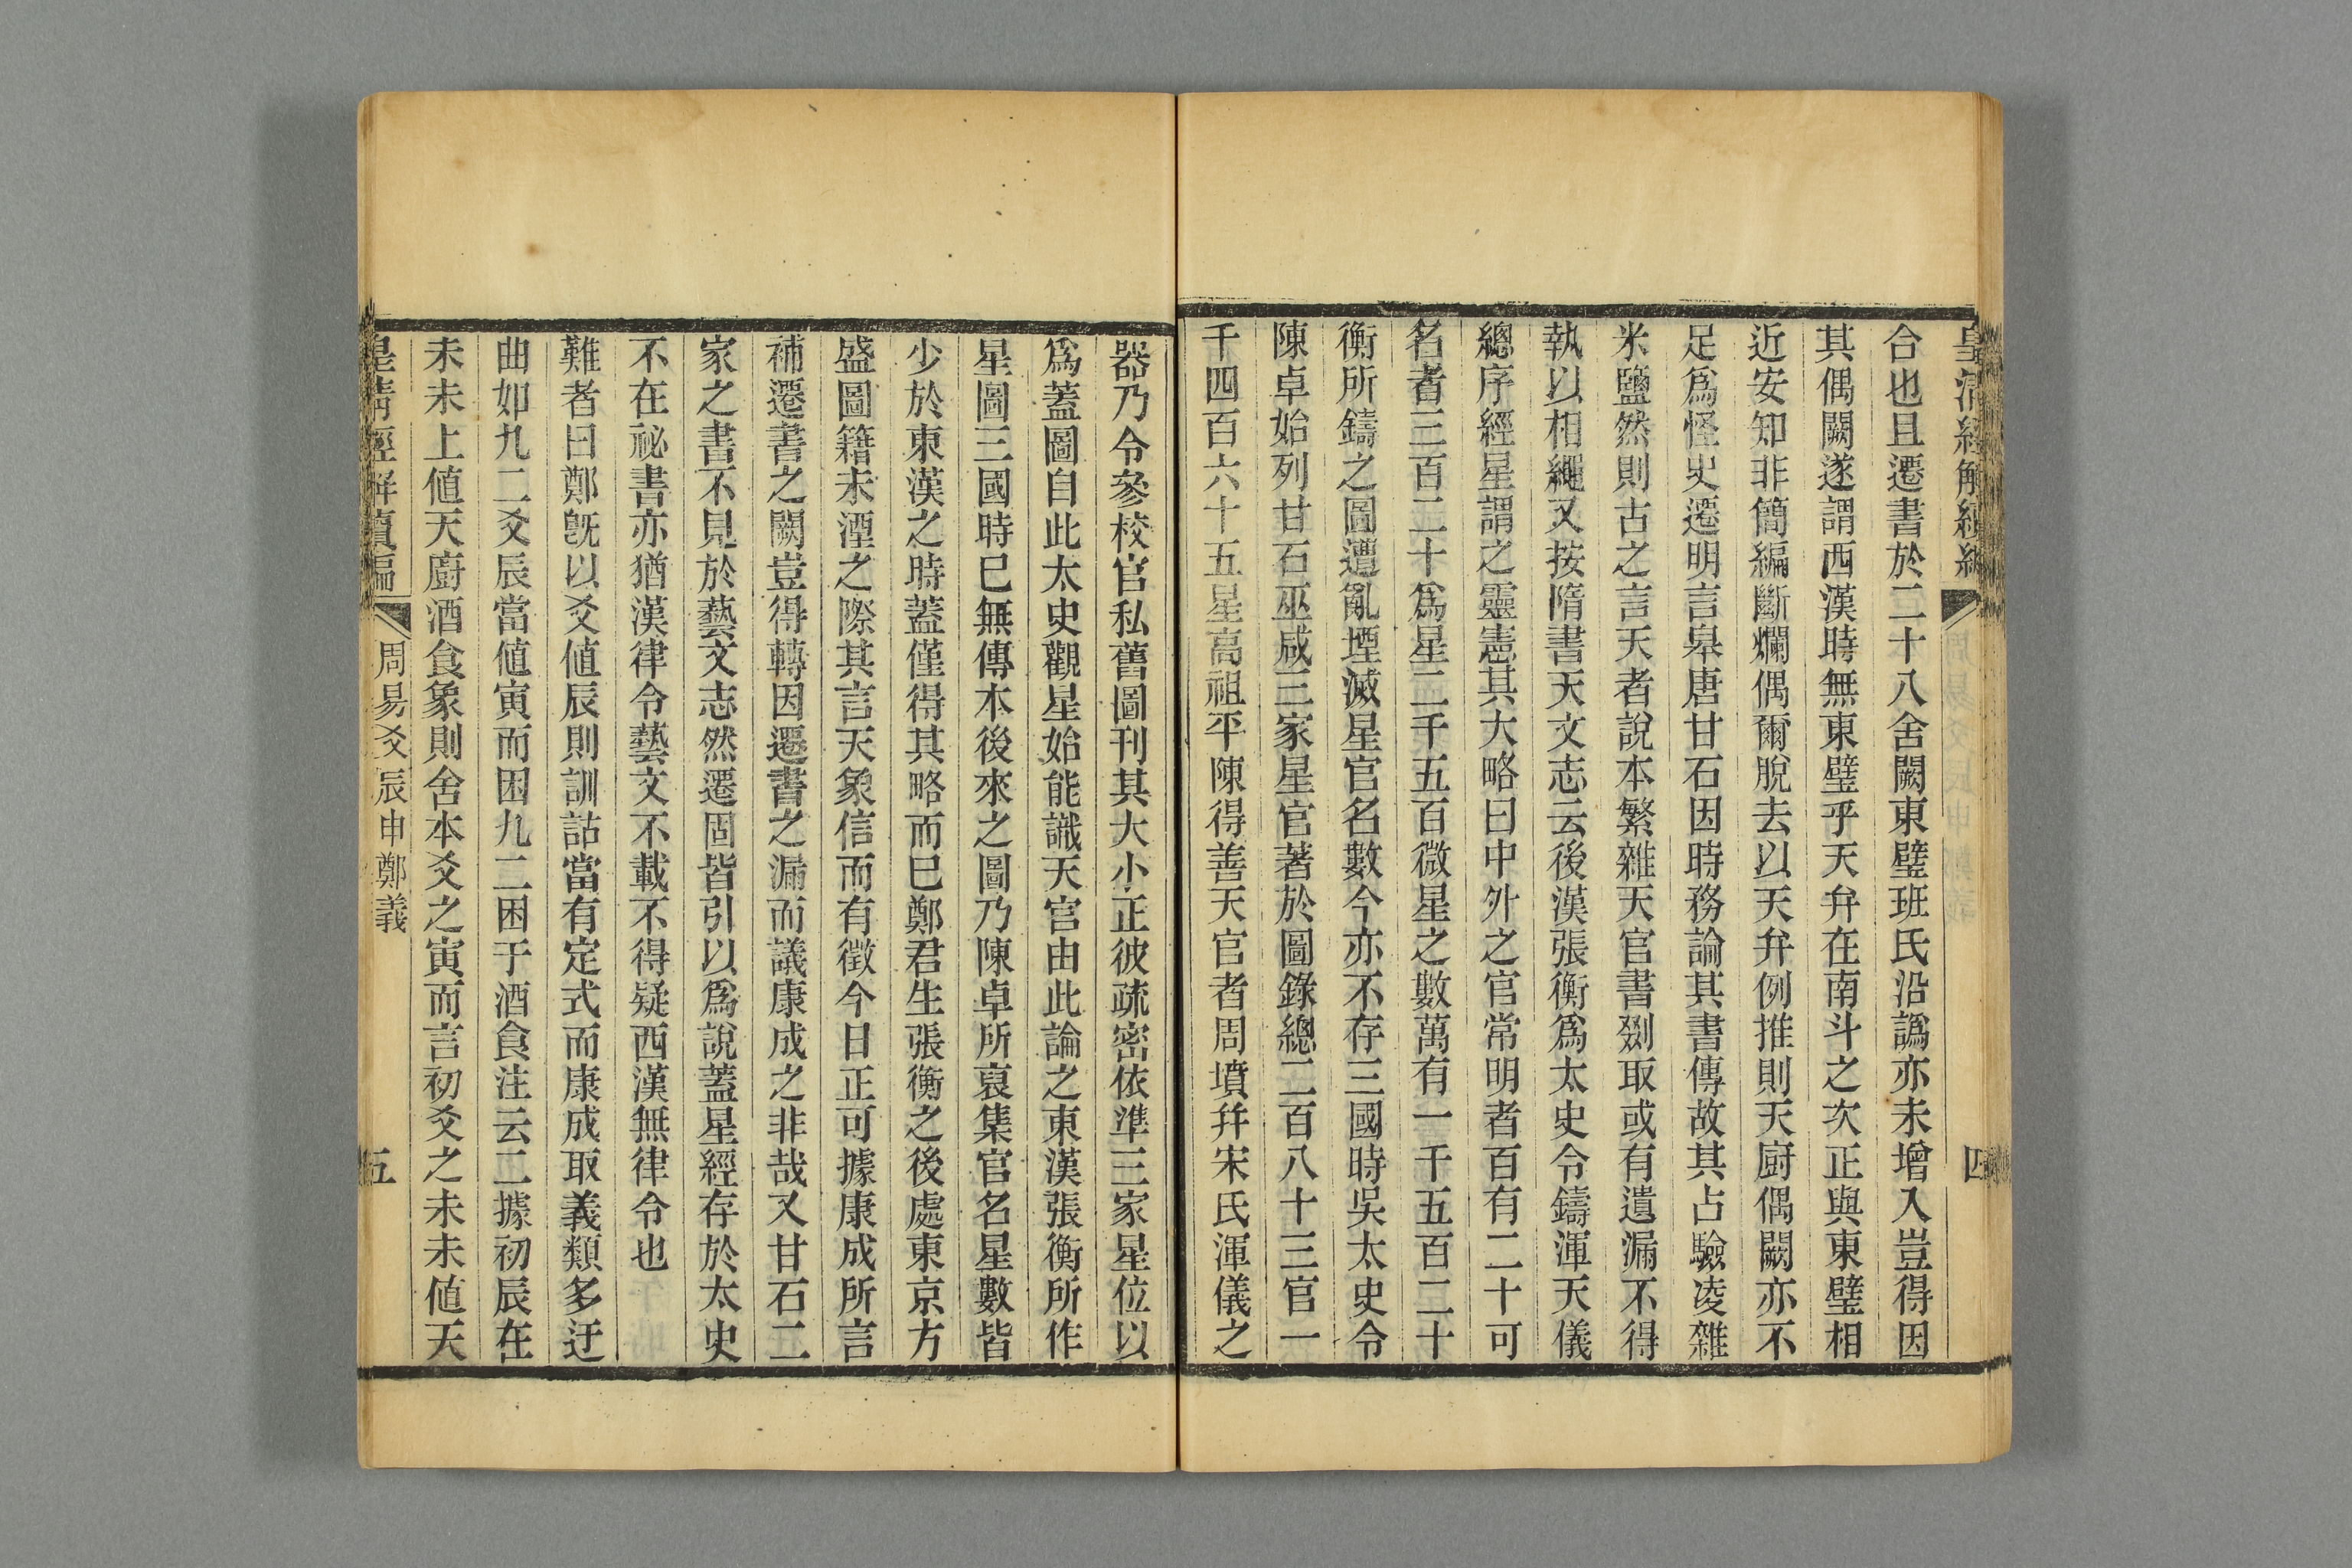 皇清經解續編
四
合也且遷書於二十八舍闕東壁班氏沿譌亦未增入豈得因
其偶闕遂謂西漢時無東壁乎天弁在南斗之次正與東壁相
近安知非簡編斷爛偶爾脫去以天弁例推則天廚偶闕亦不
足爲怪史遷明言皋唐甘石因時務論其書傳故其占驗凌雜
米鹽然則古之言天者說本繁雜天官書剟取或有遺漏不得
執以相繩又按隋書天文志云後漢張衡爲太史令鑄渾天儀
總序經星謂之靈憲其大略曰中外之官常明者百有二十可
名者三百二十爲星二千五百微星之數萬有一千五百二十
衡所鑄之圖遭亂堙滅星官名數今亦不存三國時吳太史令
陳卓始列甘石巫咸三家星官著於圖錄總二百八十三官一
千四百六十五星高祖平陳得善天官者周墳幷宋氏渾儀之
器乃令參校官私舊圖刊其大小正彼疏密依準三家星位以
爲蓋圖自此太史觀星始能識天官由此論之東漢張衡所作
星圖三國時已無傳本後來之圖乃陳卓所裒集官名星數皆
少於東漢之時蓋僅得其略而已鄭君生張衡之後處東京方
盛圖籍未湮之際其言天象信而有徵今日正可據康成所言
補遷書之闕豈得轉因遷書之漏而議康成之非哉又甘石二
家之書不見於藝文志然遷固皆引以爲說蓋星經存於太史
不在祕書亦猶漢律令藝文不載不得疑西漢無律令也
難者曰鄭旣以爻値辰則訓詁當有定式而康成取義類多迂
曲如九二爻辰當値寅而困九二困于酒食注云二據初辰在
未未上値天廚酒食象則舍本爻之寅而言初爻之未未値天
皇清經解續編
周易爻辰申鄭義
五